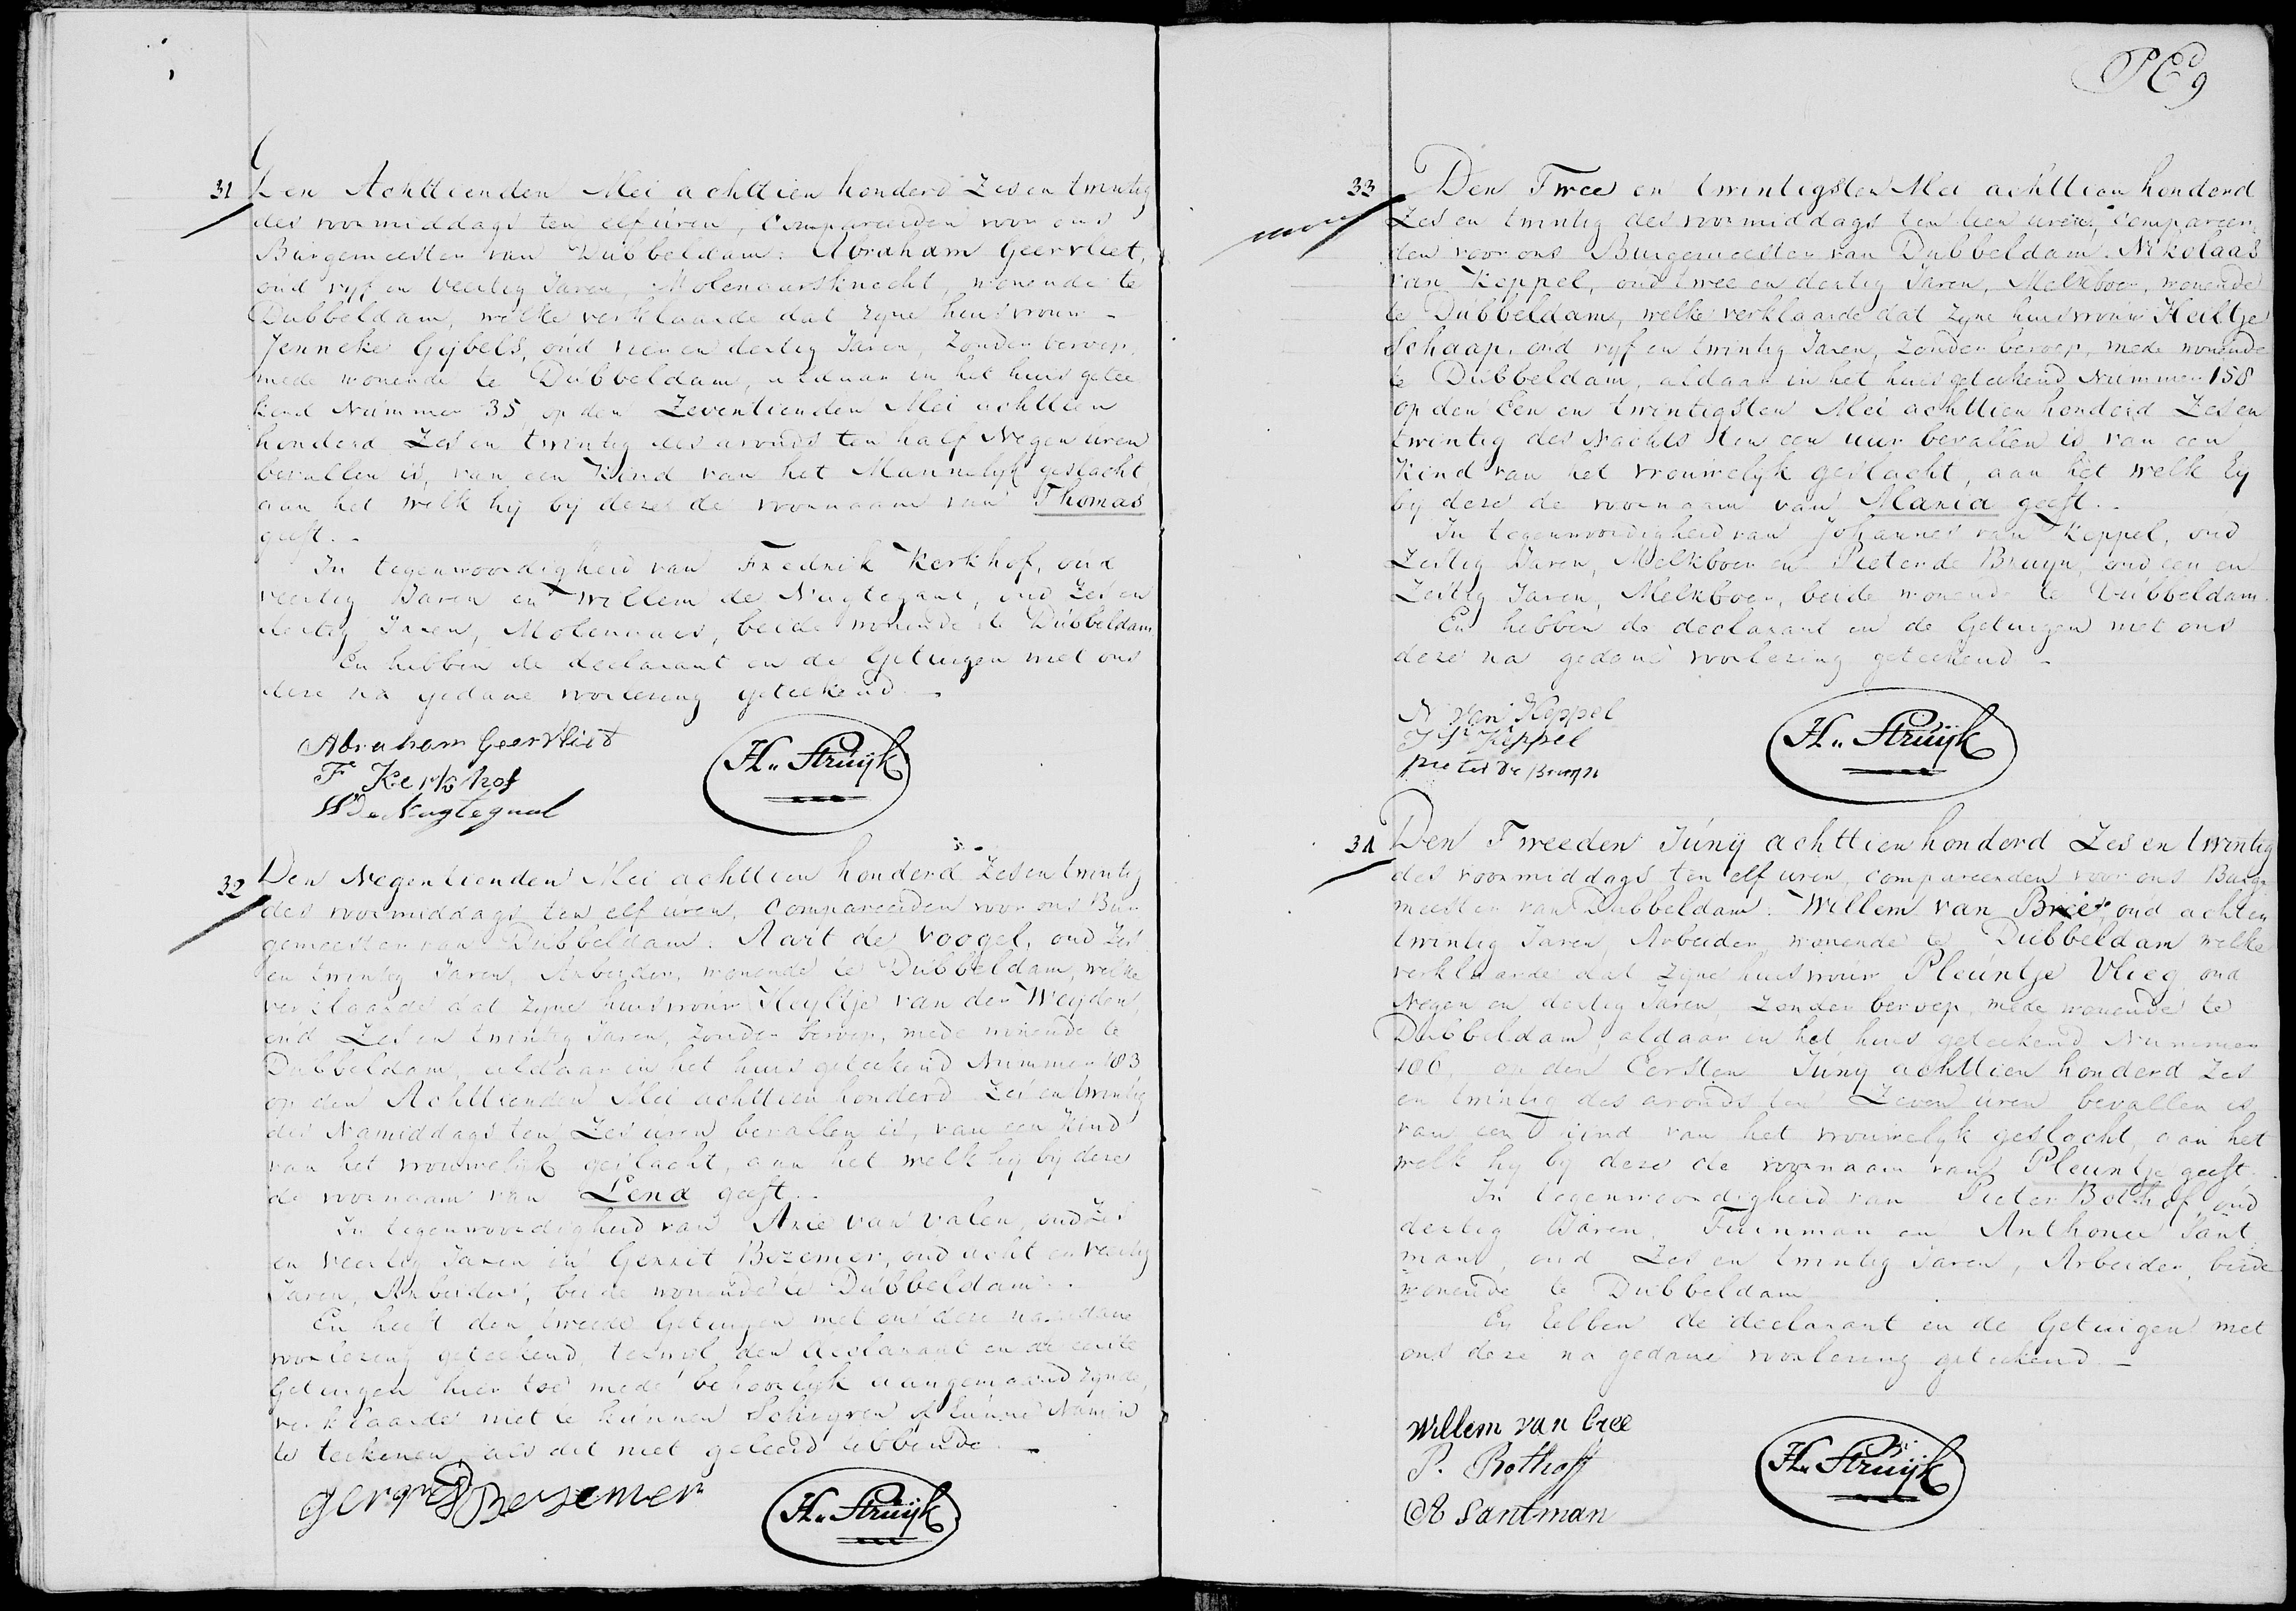 31 Den Achttienden Mei achttien honderd Zes en twintig
des voormiddags ten elf uren, Compareerden voor ons
Burgemeester van Dubbeldam: Abraham Geervliet,
oud vyf en Veertig Jaren, Molenaarsknecht, wonende te
Dubbeldam, welke verklaarde dat zyne huisvrouw -
Jenneke Gijbels, oud vier en dertig Jaren, Zonder beroep,
mede wonende te Dubbeldam, aldaar in het huis getee
kend Nummer 35, op den Zeventienden Mei achttien
honderd Zes en twintig des avonds ten half Negen uren
bevallen is, van een Kind van het Mannelyk geslacht
aan het welk hij bij deze de voornaam van Thomas
geeft. -
In tegenwoordigheid van Fredrik Kerkhof, oud
veertig Jaren en Willem de Nagtegaal, oud Zes en
dertig Jaren, Molenaars, beide wonende te Dubbeldam
En hebben de declarant en de Getuigen met ons
deze na gedane voorlezing geteekend. -
Abraham Geervliet
F Kerkhof
W De Nagtegaal
H. Struijk
32 Den Negentienden Mei achttien honderd Zes en twintig
des voormiddags ten elf uren, Compareerden voor ons Bur
gemeester van Dubbeldam: Aart de Voogel, oud Zes
en twintig Jaren, Arbeider, wonende te Dubbeldam, welke
verklaarde dat zyne huisvrouw Heyltje van der Weijden,
oud Zes en twintig Jaren, zonder beroep, mede wonende te
Dubbeldam, aldaar in het huis geteekend Nummer 183
op den Achttienden Mei achttien honderd Zes en twintig
des Namiddags ten Zes uren bevallen is, van een Kind
van het vrouwelijk geslacht, aan het welk hij bij deze
de voornaam van Lena geeft. -
In tegenwoordigheid van Arie van Valen, oud Zes
en veertig Jaren en Gerrit Bezemer, oud acht en veertig
Jaren, Arbeiders, beide wonende te Dubbeldam. -
En heeft den tweede Getuigen met ons deze na gedane
voorlezing geteekend, terwyl den declarant en de eerste
Getuigen hier toe mede behoorlyk aangemaand zynde,
verklaarde niet te kunnen Schryven of hunne Namen
te teekenen, als dit niet geleerd hebbende. -
gerrit Besemer
H. Struijk
9
33 Den Twee en twintigsten Mei achttien honderd
Zes en twintig des voormiddags ten tien uren, compareer
den voor ons Burgemeester van Dubbeldam: Nikolaas
van Keppel, oud twee en dertig Jaren, Melkboer, wonende
te Dubbeldam, welke verklaarde dat zyne huisvrouw Heiltje
Schaap, oud vyf en twintig Jaren, Zonder beroep, mede wonende
te Dubbeldam, aldaar in het huis geteekend Nummer 158
op den Een en twintigsten Mei achttien honderd Zes en
twintig des Nachts ten een uur bevallen is van een
Kind van het vrouwelyk geslacht, aan het welk hij
bij deze de voornaam van Maria geeft. -
In tegenwoordigheid van Johannes van Keppel, oud
Zestig Jaren, Melkboer en Pieter de Bruyn, oud een en
Zestig Jaren, Melkboer, beide wonende te Dubbeldam.
En hebben de declarant en de Getuigen met ons
deze na gedane voorlezing geteekend -
N van Keppel
J v Keppel
pieter de Bruyn
H. Struijk
34 Den Tweeden Juny achttien honderd Zes en twintig
des voormiddags ten elf uren, compareerden voor ons Burge
meester van Dubbeldam: Willem van Bree, oud acht en
twintig Jaren, Arbeider, wonende te Dubbeldam welke
verklaarde dat zyne huisvrouw Pleuntje Vlieg oud
Negen en dertig Jaren, Zonder beroep mede wonende te
Dubbeldam, aldaar in het huis geteekend Nummer
106, op den Eersten Juny achttien honderd Zes
en twintig des avonds ten Zeven uren bevallen is
van een kind van het vrouwelyk geslacht, aan het
welk hy by deze de voornaam van Pleuntje geeft -
In tegenwoordigheid van Pieter Bothof, oud
dertig Jaren, Tuinman en Anthonie Sant
man, oud Zes en twintig Jaren, Arbeider, beide
wonende te Dubbeldam
En hebben de declarant en de Getuigen met
ons deze na gedane voorlezing geteekend -
Willem van bree
P. Bothoff
A Santman
H. Struijk